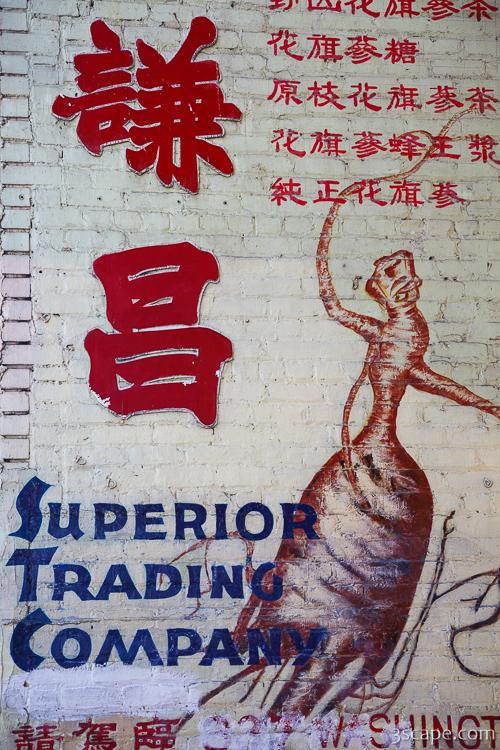 野山花旗蔘茶
花旗蔘糖
原枝花旗蔘茶
花旗蔘蜂王漿
純正花旗蔘
謙昌
SUPERIOR
TRADING
COMPANY
請駕臨 837 WASHINGT
3scape.com